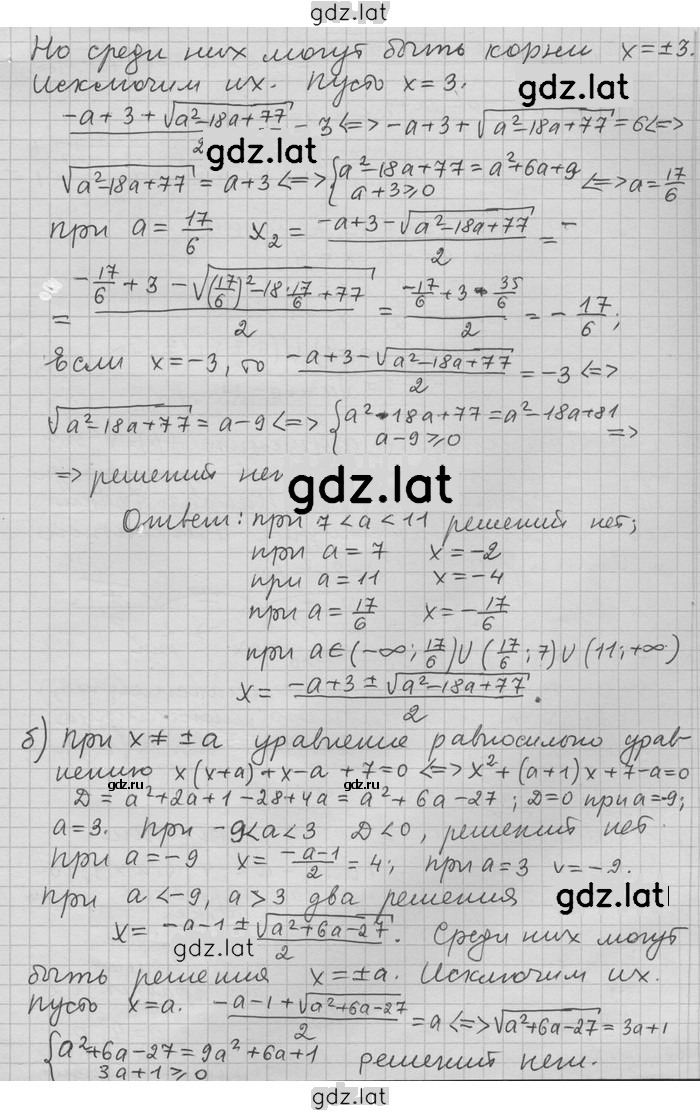 gdz.lat
Но среди них могут быть корни x=±3.
Исключим их. Пусто x=3.
gdz.lat
(-a+3+√(a²-18a+77))/2 -3 <=> -a+3+√(a²-18a+77) = 6 <=>
gdz.lat
√(a²-18a+77) = a+3 <=> { a²-18a+77 = a²+6a+9 <=> a = 17/6
a+3≥0
при a = 17/6 x₂ = (-a+3-√(a²-18a+77))/2 = -
= (-17/6 + 3 - √((17/6)²-18·17/6+77))/2 = (-17/6 + 3 - 35/6)/2 = -17/6;
Если x=-3, то (-a+3-√(a²-18a+77))/2 = -3 <=>
√(a²-18a+77) = a-9 <=> { a²-18a+77 = a²-18a+81 =>
a-9≥0
=> решений нет
gdz.lat
Ответ: при 7<a<11 решений нет;
при a=7 x=-2
при a=11 x=-4
при a=17/6 x=-17/6
при a∈(-∞; 17/6)∪(17/6; 7)∪(11; +∞)
x = (-a+3±√(a²-18a+77))/2.
б) при x≠±a уравнение равносильно урав-
нению x(x+a)+x-a+7=0 <=> x²+(a+1)x+7-a=0
gdz.ru gdz.ru gdz.ru
D = a²+2a+1-28+4a = a²+6a-27; D=0 при a=-9;
a=3. При -9<a<3 D<0, решений нет.
При a=-9 x = (-a-1)/2 = 4; при a=3 x=-2.
при a<-9, a>3 два решения
gdz.lat
x = (-a-1±√(a²+6a-27))/2. Среди них могут
gdz.lat
быть решения x=±a. Исключим их.
Пусто x=a. (-a-1+√(a²+6a-27))/2 = a <=> √(a²+6a-27) = 3a+1
{ a²+6a-27 = 9a²+6a+1 решений нет.
3a+1≥0
gdz.lat